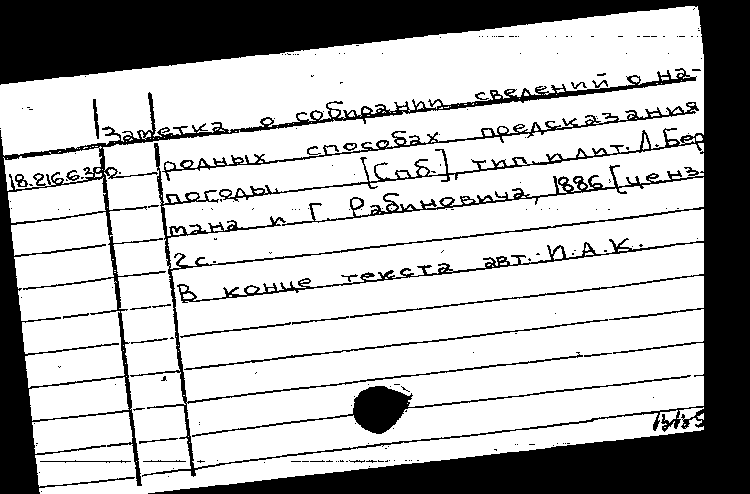 Заметка о собирании сведений о на-
18.216.6.380. родных способах предсказания
погоды. [Спб.], тип. и лит. Л. Бер
мана и Г. Рабиновича, 1886 [ценз.
2 с.
В конце текста авт.: И.А.К.